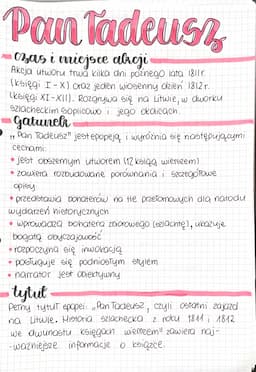 Pan Tadeusz
czas i miejsce akcji
Akcja utworu trwa kilka dni późnego lata 1811r.
(księgi I - X) oraz jeden wiosenny dzień 1812 r.
(księgi XI - XII). Rozgrywa się na Litwie, w dworku
szlacheckim Soplicowo i jego okolicach.
gatunek
"Pan Tadeusz" jest epopeją i wyróżnia się następującymi
cechami:
• jest obszernym utworem (12 ksiąg wierszem)
• zawiera rozbudowane porównania i szczegółowe
opisy
• przedstawia bohaterów na tle przełomowych dla narodu
wydarzeń historycznych
• wprowadza bohatera zbiorowego (szlachtę), ukazuje
bogatą obyczajowość
• rozpoczyna się inwokacją
• posługuje się podniosłym stylem
• narrator jest obiektywny
tytuł
Pełny tytuł epopei: "Pan Tadeusz, czyli ostatni zajazd
na Litwie. Historia szlachecka z roku 1811 i 1812
we dwunastu księgach wierszem" zawiera naj-
-ważniejsze informacje o książce.